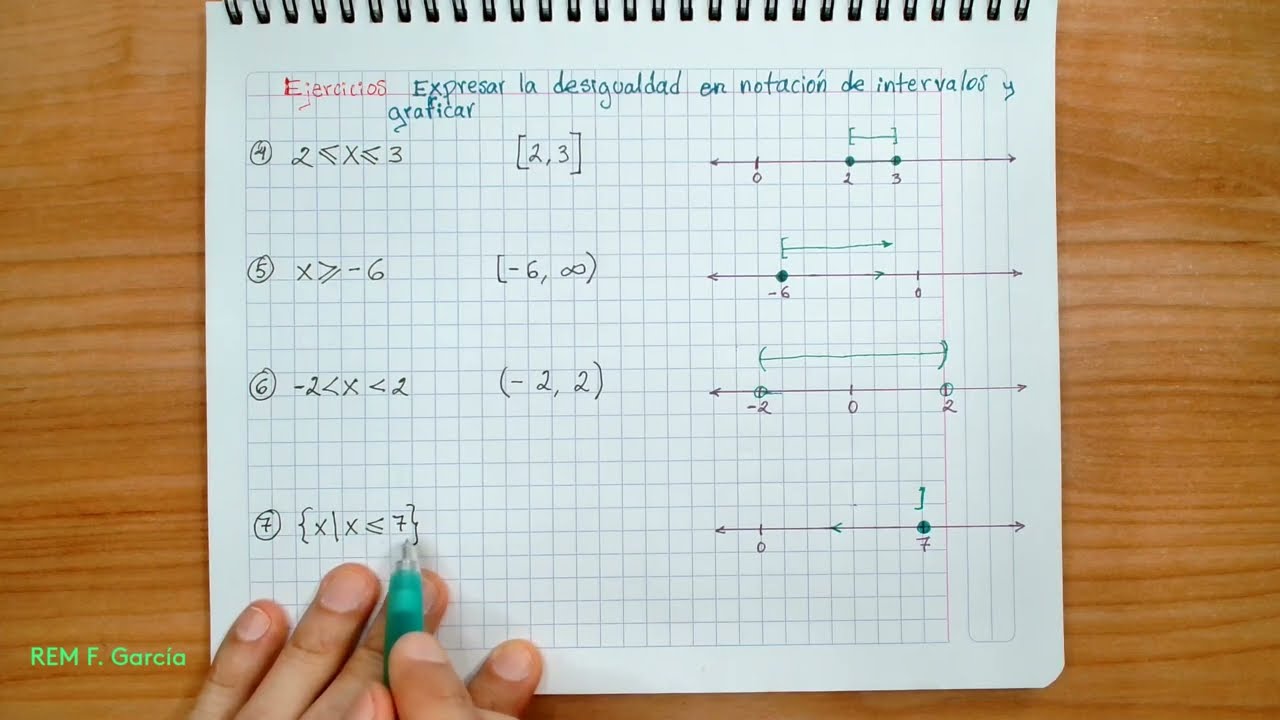 Ejercicios Expresar la desigualdad en notación de intervalos y
graficar
④ 2 ≤ x ≤ 3 [2, 3] 0 2 3
⑤ x ≥ -6 [-6, ∞) -6 0
⑥ -2 < x < 2 (-2, 2) -2 0 2
⑦ {x | x ≤ 7} 0 7
REM F. García